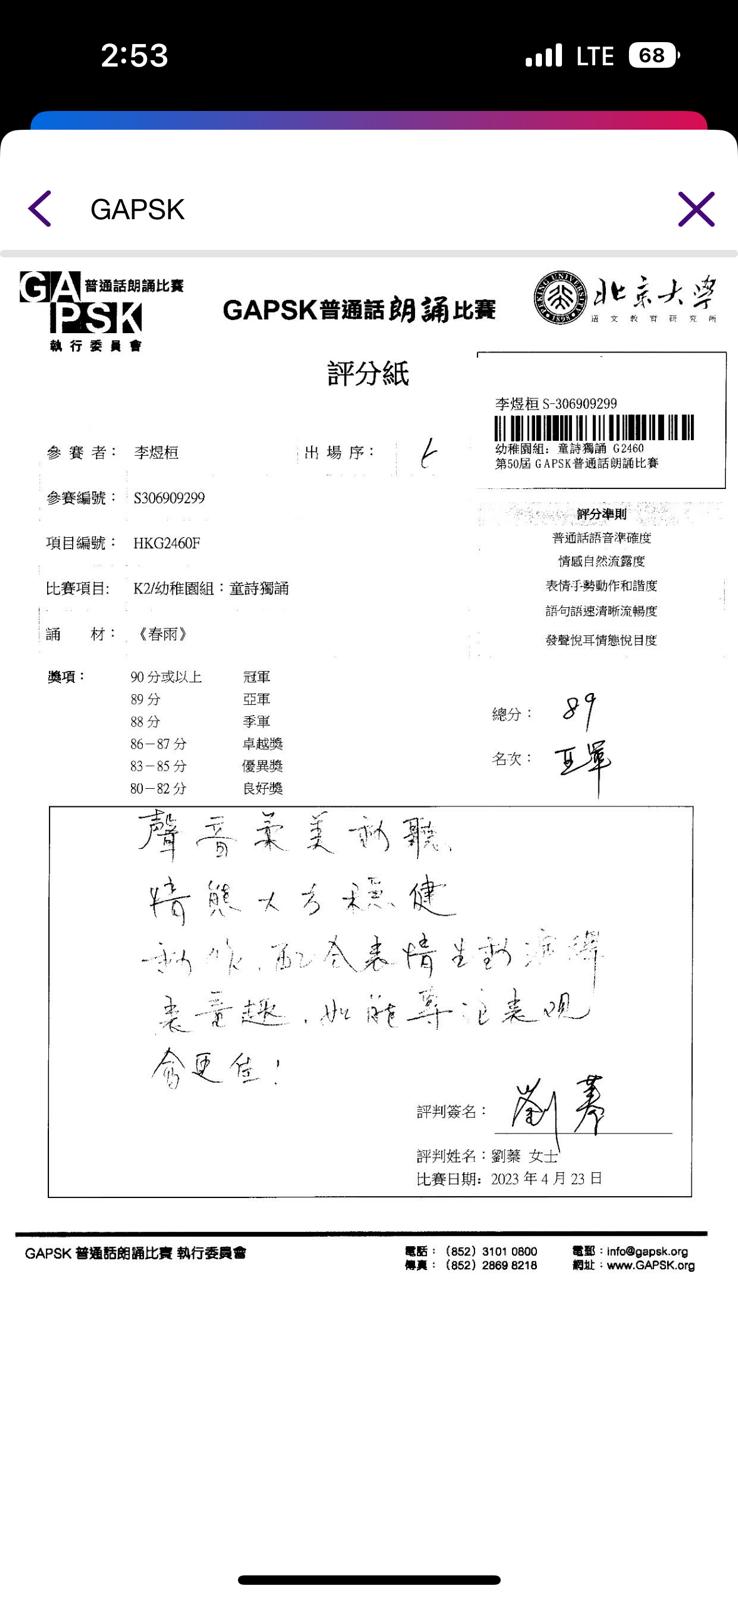 2:53 LTE 68
GAPSK
GAPSK 普通話朗誦比賽
執行委員會
GAPSK普通話朗誦比賽
PEKING UNIVERSITY 1898
北京大學
語文教育研究所
評分紙
李煜桓 S-306909299
幼稚園組：童詩獨誦 G2460
第50屆 GAPSK普通話朗誦比賽
參賽者： 李煜桓 出場序：
參賽編號： S306909299
項目編號： HKG2460F
比賽項目: K2/幼稚園組：童詩獨誦
誦材： 《春雨》
評分準則
普通話語音準確度
情感自然流露度
表情手勢動作和諧度
語句語速清晰流暢度
發聲悅耳情態悅目度
獎項： 90 分或以上 冠軍
89 分 亞軍
88 分 季軍
86－87 分 卓越獎
83－85 分 優異獎
80－82 分 良好獎
總分： 89
名次： 亞軍
聲音柔美動聽、
情態大方穩健
動作、配合表情生動演繹
表童趣，如能專注表現
會更佳！
評判簽名： 劉蓁
評判姓名：劉蓁 女士
比賽日期：2023 年 4 月 23 日
GAPSK 普通話朗誦比賽 執行委員會
電話：（852）3101 0800
傳真：（852）2869 8218
電郵：info@gapsk.org
網址：www.GAPSK.org